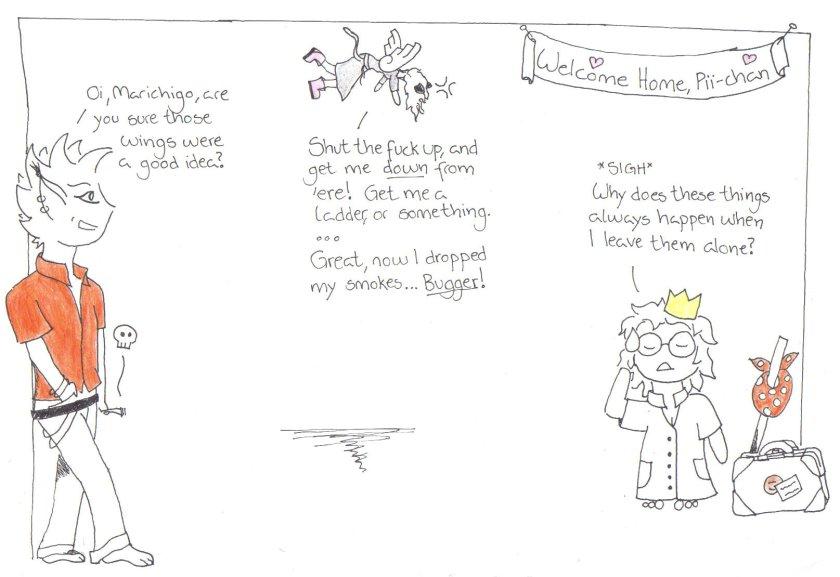 Oi, Marichigo, are
you sure those
wings were
a good idea?
Shut the fuck up, and
get me down from
'ere! Get me a
ladder, or something.
...
Great, now I dropped
my smokes... Bugger!
Welcome Home, Pii-chan
*SIGH*
Why does these things
always happen when
I leave them alone?